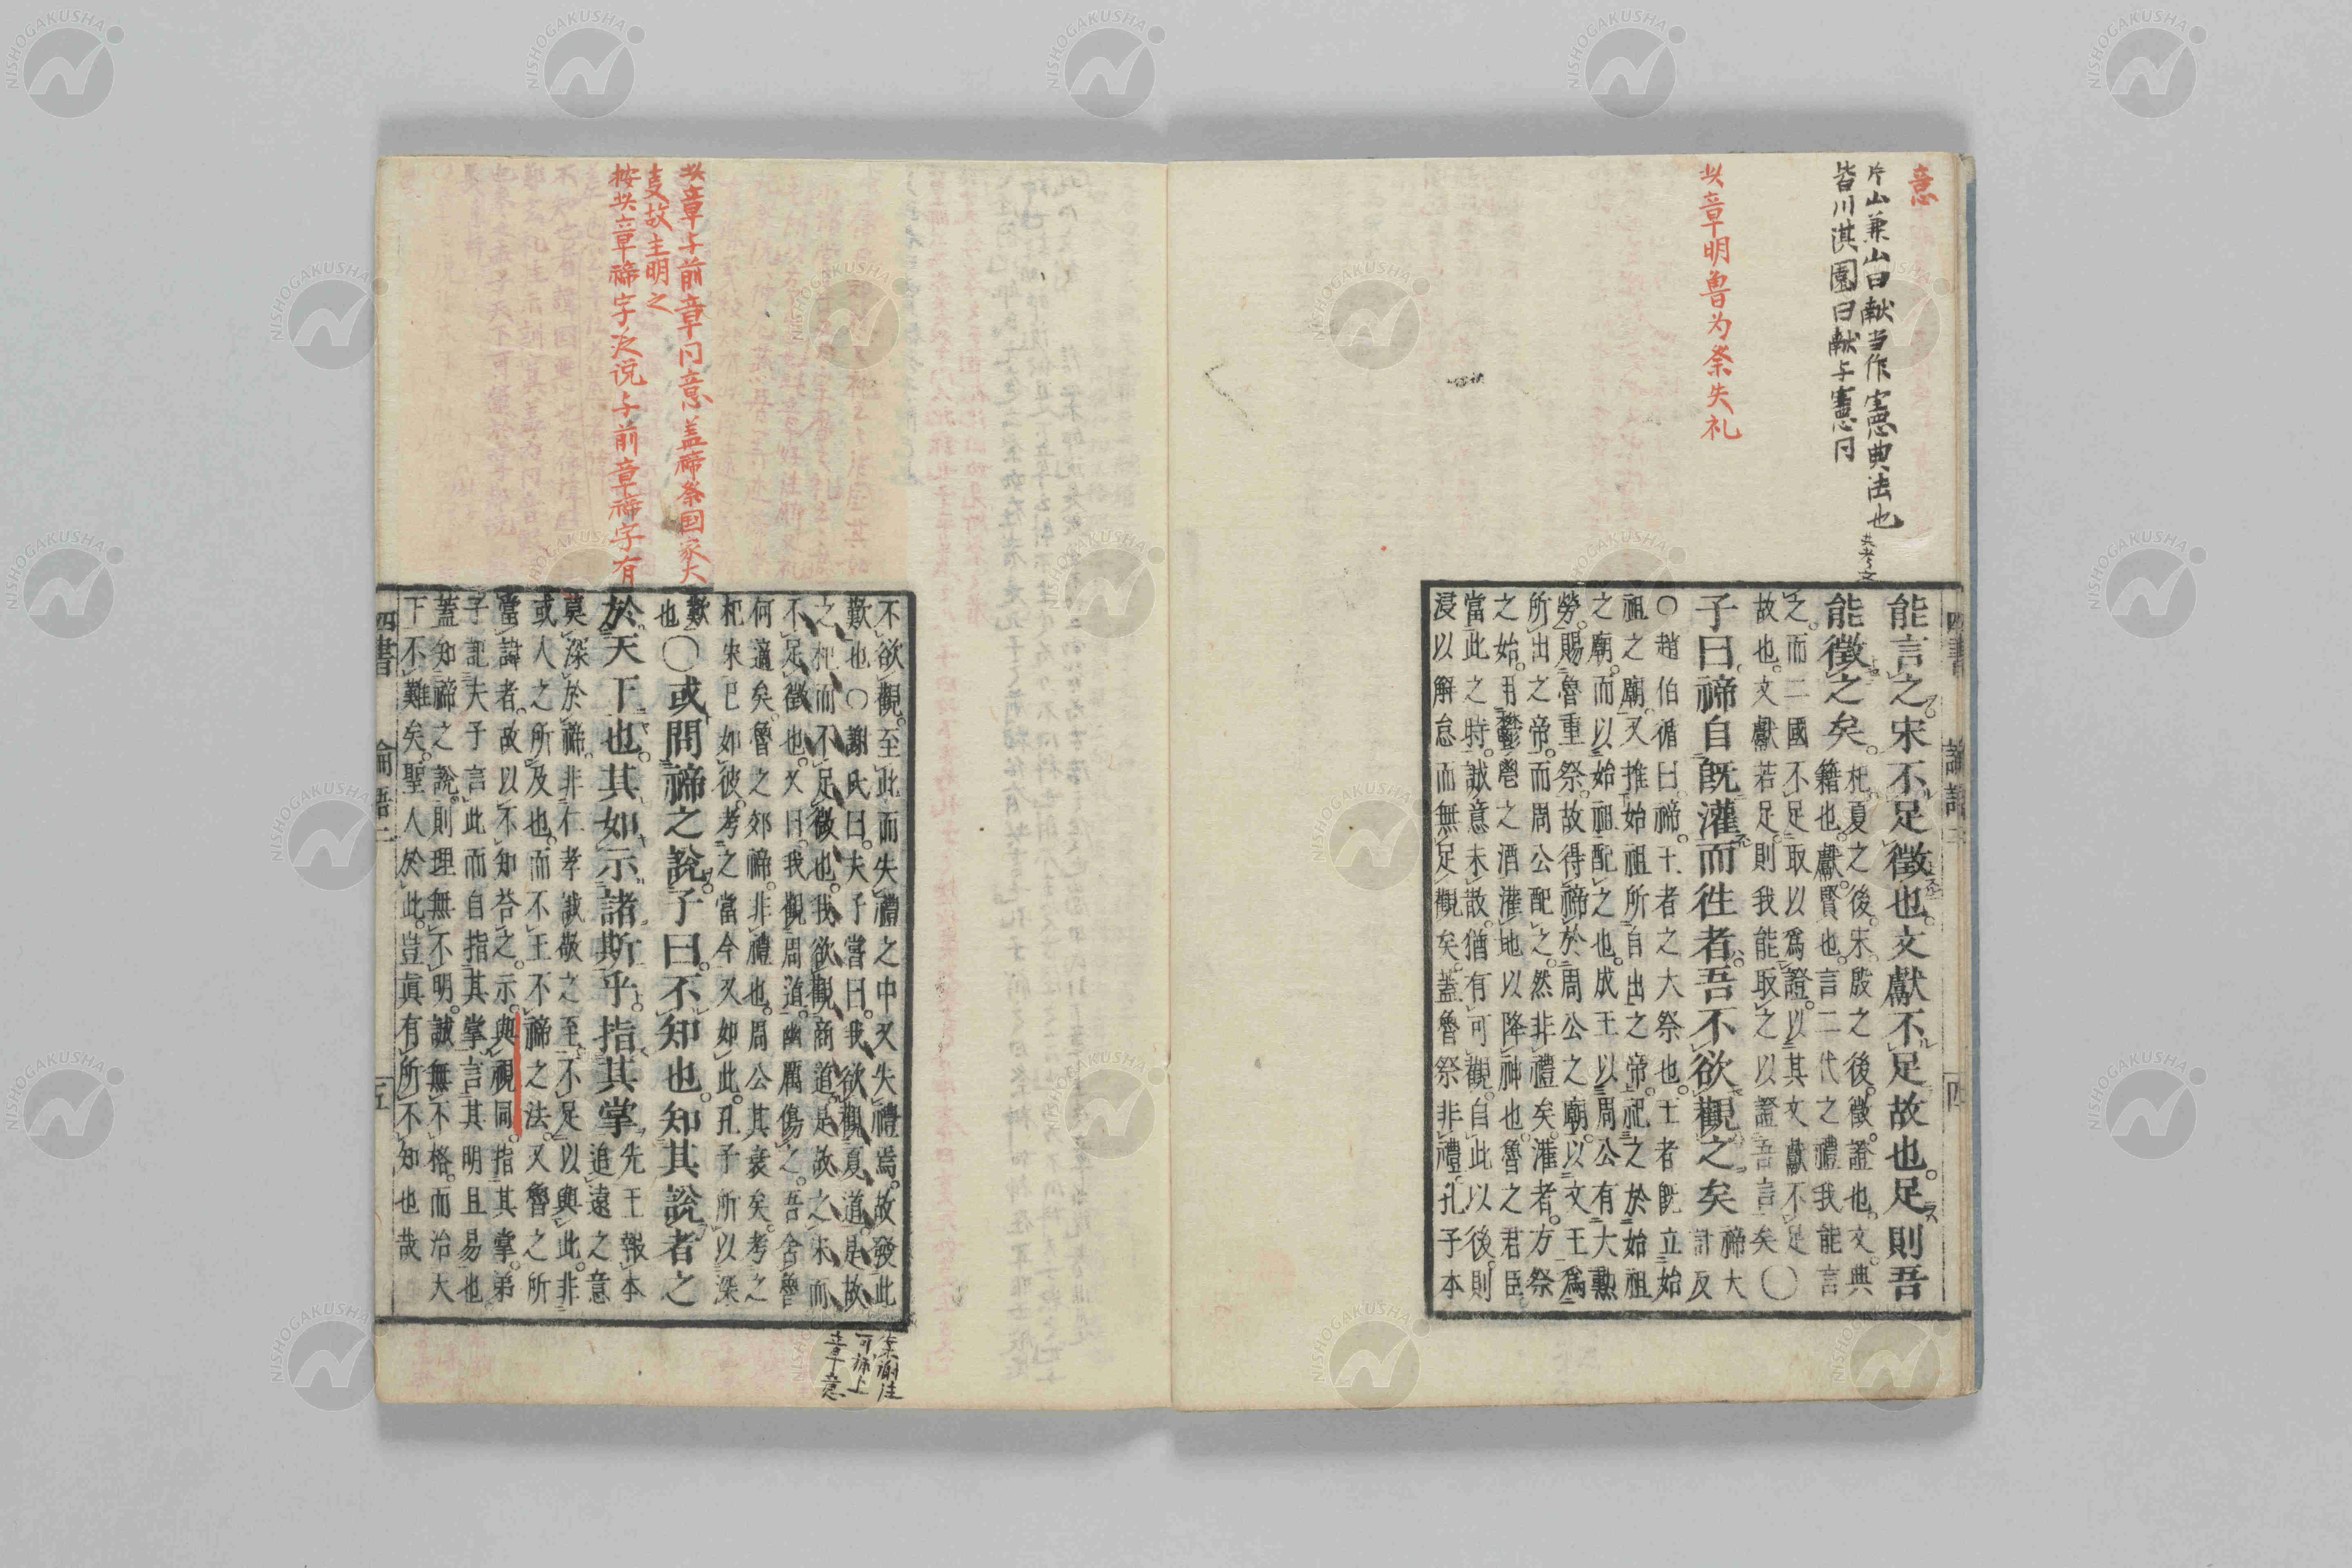 意
片山兼山曰献当作憲憲典法也 共考文
皆川淇園曰献与憲同
此章明魯为祭失礼
四書 論語二 四
能言之宋不足徵也文獻不足故也足則吾
能徵之矣
杞夏之後宋殷之後徵證也文典
籍也獻賢也言二代之禮我能言
之而二國不足取以爲證以其文獻不足
故也文獻若足則我能取之以證吾言矣〇
子曰禘自既灌而徃者吾不欲觀之矣
禘大
計反
〇趙伯循曰禘王者之大祭也王者既立始
祖之廟又推始祖所自出之帝祀之於始祖
之廟而以始祖配之也成王以周公有大勲
勞賜魯重祭故得禘於周公之廟以文王爲
所出之帝而周公配之然非禮矣灌者方祭
之始用鬱鬯之酒灌地以降神也魯之君臣
當此之時誠意未散猶有可觀自此以後則
浸以解怠而無足觀矣蓋魯祭非禮孔子本
此章与前章同意盖禘祭国家大
支故主明之
按此章禘字泛说与前章禘字有
不欲觀至此而失禮之中又失禮焉故發此
歎也〇謝氏曰夫子嘗曰我欲觀夏道是故
之杞而不足徵也我欲觀商道是故之宋而
不足徵也又曰我觀周道幽厲傷之吾舍魯
何適矣魯之郊禘非禮也周公其衰矣考之
杞宋已如彼考之當今又如此孔子所以深
歎
也
〇或問禘之說子曰不知也知其說者之
於天下也其如示諸斯乎指其掌
先王報本
追遠之意
莫深於禘非仁孝誠敬之至不足以與此非
或人之所及也而不王不禘之法又魯之所
當諱者故以不知荅之示與視同指其掌弟
子記夫子言此而自指其掌言其明且易也
蓋知禘之說則理無不明誠無不格而治天
下不難矣聖人於此豈真有所不知也哉
四書 論語二 五
案謝注
可添上
章意
NISHOGAKUSHA